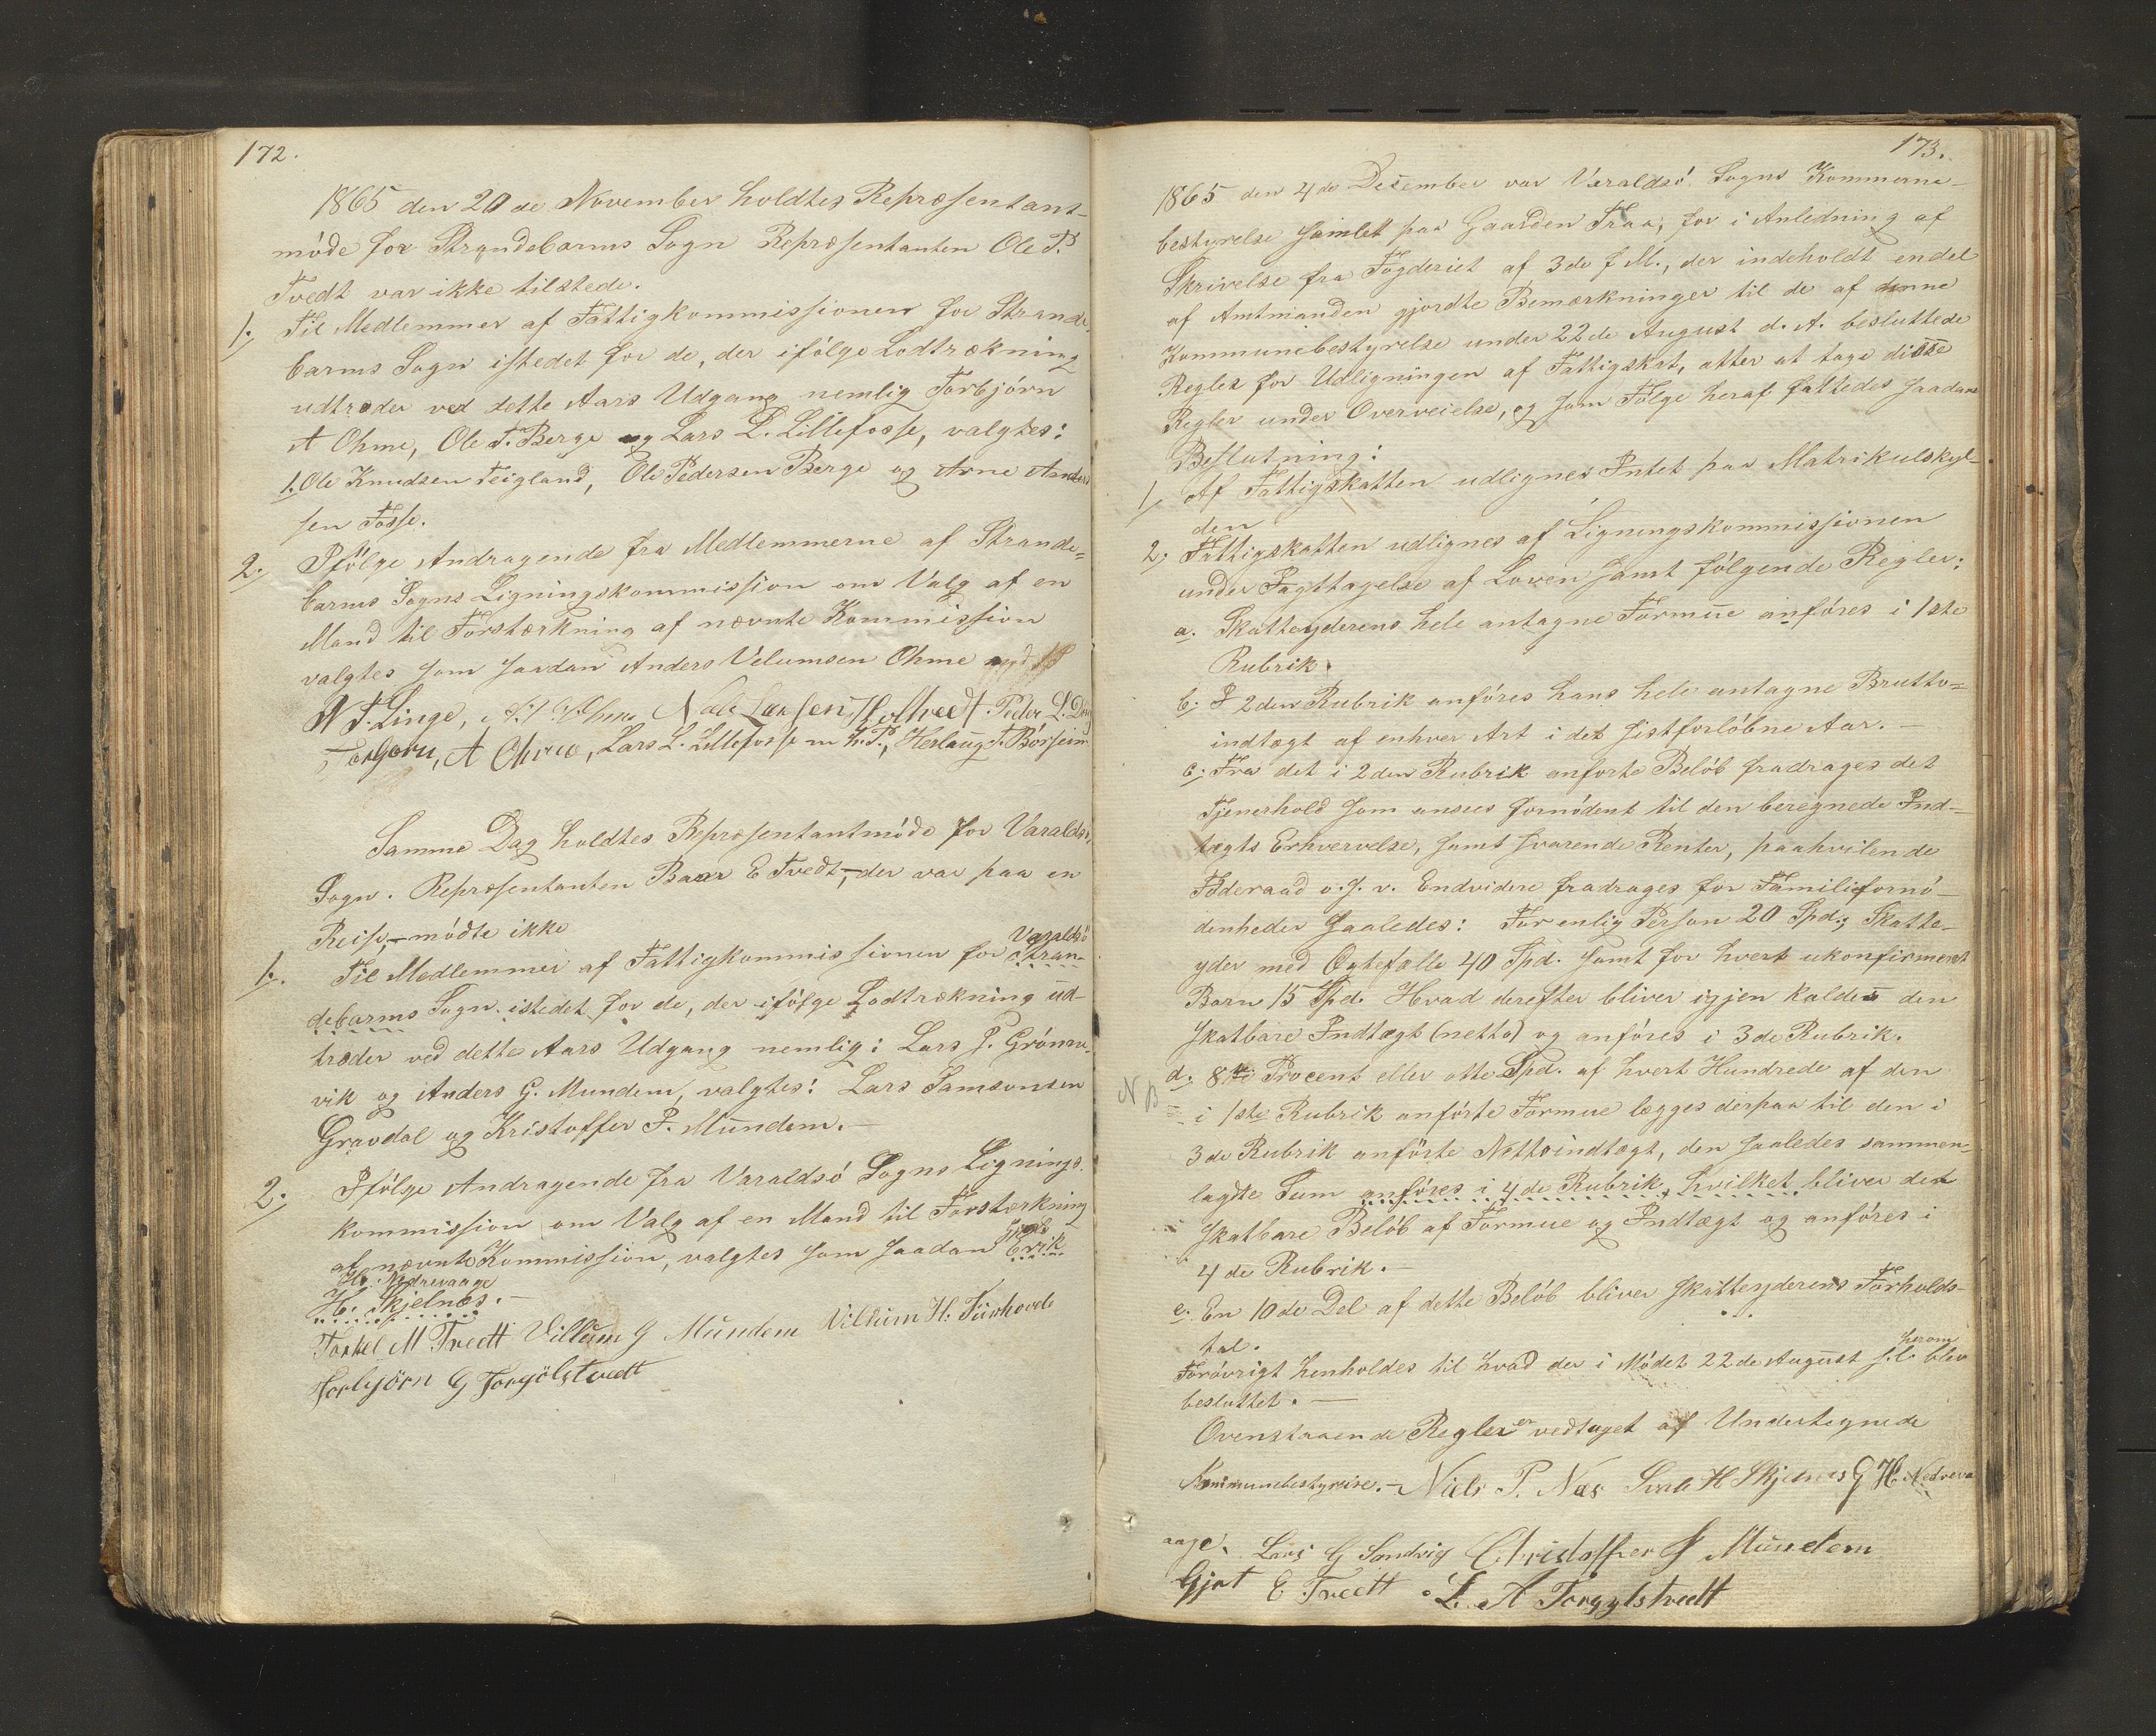 172.
1865 den 20de November holdtes Repræsentant-
möde for Strandebarms Sogn Repræsentanten Ole T.
Tvedt var ikke tilstede.
1. Til Medlemmer af Fattigkommissionen for Strande-
barms Sogn istedet for de, der ifölge Lodtrækning
udtræder ved dette Aars Udgang nemlig Torbjörn
A Ohme, Ole T. Berge og Lars L. Lillefosse, valgtes:
1. Ole Knudsen Teigland, Ole Pedersen Berge og Arne Anders
sen Fosse.
2. Ifölge Andragende fra Medlemmerne af Strande=
barms Sogns Ligningskommission om Valg af en
Mand til Forstærkning af nævnte Kommission
valgtes som saadan Anders Velumsen Ohme
N T. Linge, Nils Larsen Haltvedt. Peder L.
Torbjörn, A Ohme, Lars L. Lillefosse m. f. P., Herlaug T. Börsheim
Samme Dag holdtes Repræsentantmöde for Varaldsö
Sogn. Repræsentanten Baar E Tvedt, der var paa en
Reise, mödte ikke
1. Til Medlemmer af Fattigkommissionen for Varaldsö Stran-
debarms Sogn istedet for de, der ifölge Lodtrækning ud-
træder ved dette Aars Udgang nemlig: Lars J. Grönne-
vik og Anders G. Mundem, valgtes: Lars Samsonsen
Gravdal og Kristoffer P. Mundem.-
2. Ifölge Andragende fra Varaldsö Sogns Lignings-
kommission om Valg af en Mand til Forstærkning
af nævnte Kommission, valgtes som saadan Erik
H. Nedrevaage
H. Skjelnæs.-
Torkel M Tvedt Villum G Mundem Villum H. Turhovde
Torbjörn G Torgölstvedt
173.
1865 den 4de Desember var Varaldsö Sogns Kommune-
bestyrelse samlet paa Gaarden Traa, for i Anledning af
Skrivelse fra Fogderiet af 3de f. M., der indeholdt endel
af Amtmanden gjordte Bemærkninger til de af denne
Kommunebestyrelse under 22de August d. A. besluttede
Regler for Udligningen af Fattigskat, atter at tage disse
Regler under Overveielse, og som Fölge heraf fattedes saadan
Beslutning:
1, Af Fattigskatten udlignes Intet paa Matrikulskyl-
den
2, Fattigskatten udlignes af Ligningskommissionen
under Iagttagelse af Loven samt fölgende Regler:
a. Skatteyderens hele antagne Formue anföres i 1ste
Rubrik.
b; I 2den Rubrik anföres hans hele antagne Brutto=
indtægt af enhver Art i det sistforlöbne Aar.-
c; Fra det i 2den Rubrik anförte Belöb fradrages det
Tjenerhold som ansees fornödent til den beregnede Ind-
tægts Erhvervelse, samt svarende Renter, paahvilende
Föderaad o. s. v. Endvidere fradrages for Familiefornö-
denheder saaledes: For enlig Person 20 Spd., Skatte-
yder med Ægtefælle 40 Spd. samt for hvert ukonfirmert
Barn 15 Spd. Hvad derefter bliver igjen kaldes den
skatbare Indtægt (netto) og anföres i 3de Rubrik.
NB
d; 8tte Procent eller otte Spd. af hvert Hundrede af den
i 1ste Rubrik anförte Formue lægges derpaa til den i
3de Rubrik anförte Nettoindtægt, den saaledes sammen-
lagdte Sum anföres i 4de Rubrik, hvilket bliver det
skatbare Belöb af Formue og Indtægt og anföres i
4de Rubrik.-
e. En 10de Del af dette Belöb bliver skatteyderens Forholds-
tal.
Forövrigt henholdes til hvad der i Mödet 22de August s. l. herom blev
besluttet.-
Ovenstaaende Regler er vedtaget af Undertegnede
Kommunebestyrelse.- Niels P. Næs H Skjelnæs G H. Nedreva
aage. Lars G Sandvig Christoffer P Mundem
Gjert E Tvedt L. A Torgylstvedt